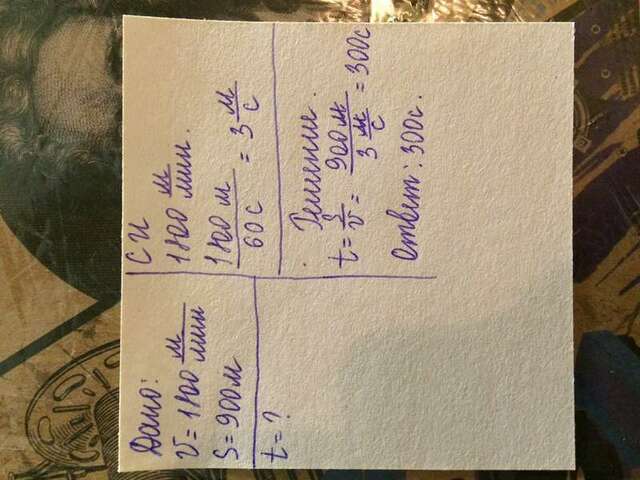 Дано:
V = 1800 м/мин
S = 900 м
t = ?
СИ
1800 м/мин.
1800 м / 60 с = 3 м/с
Решение.
t = S/V = 900 м / 3 м/с = 300 с
Ответ: 300 с.